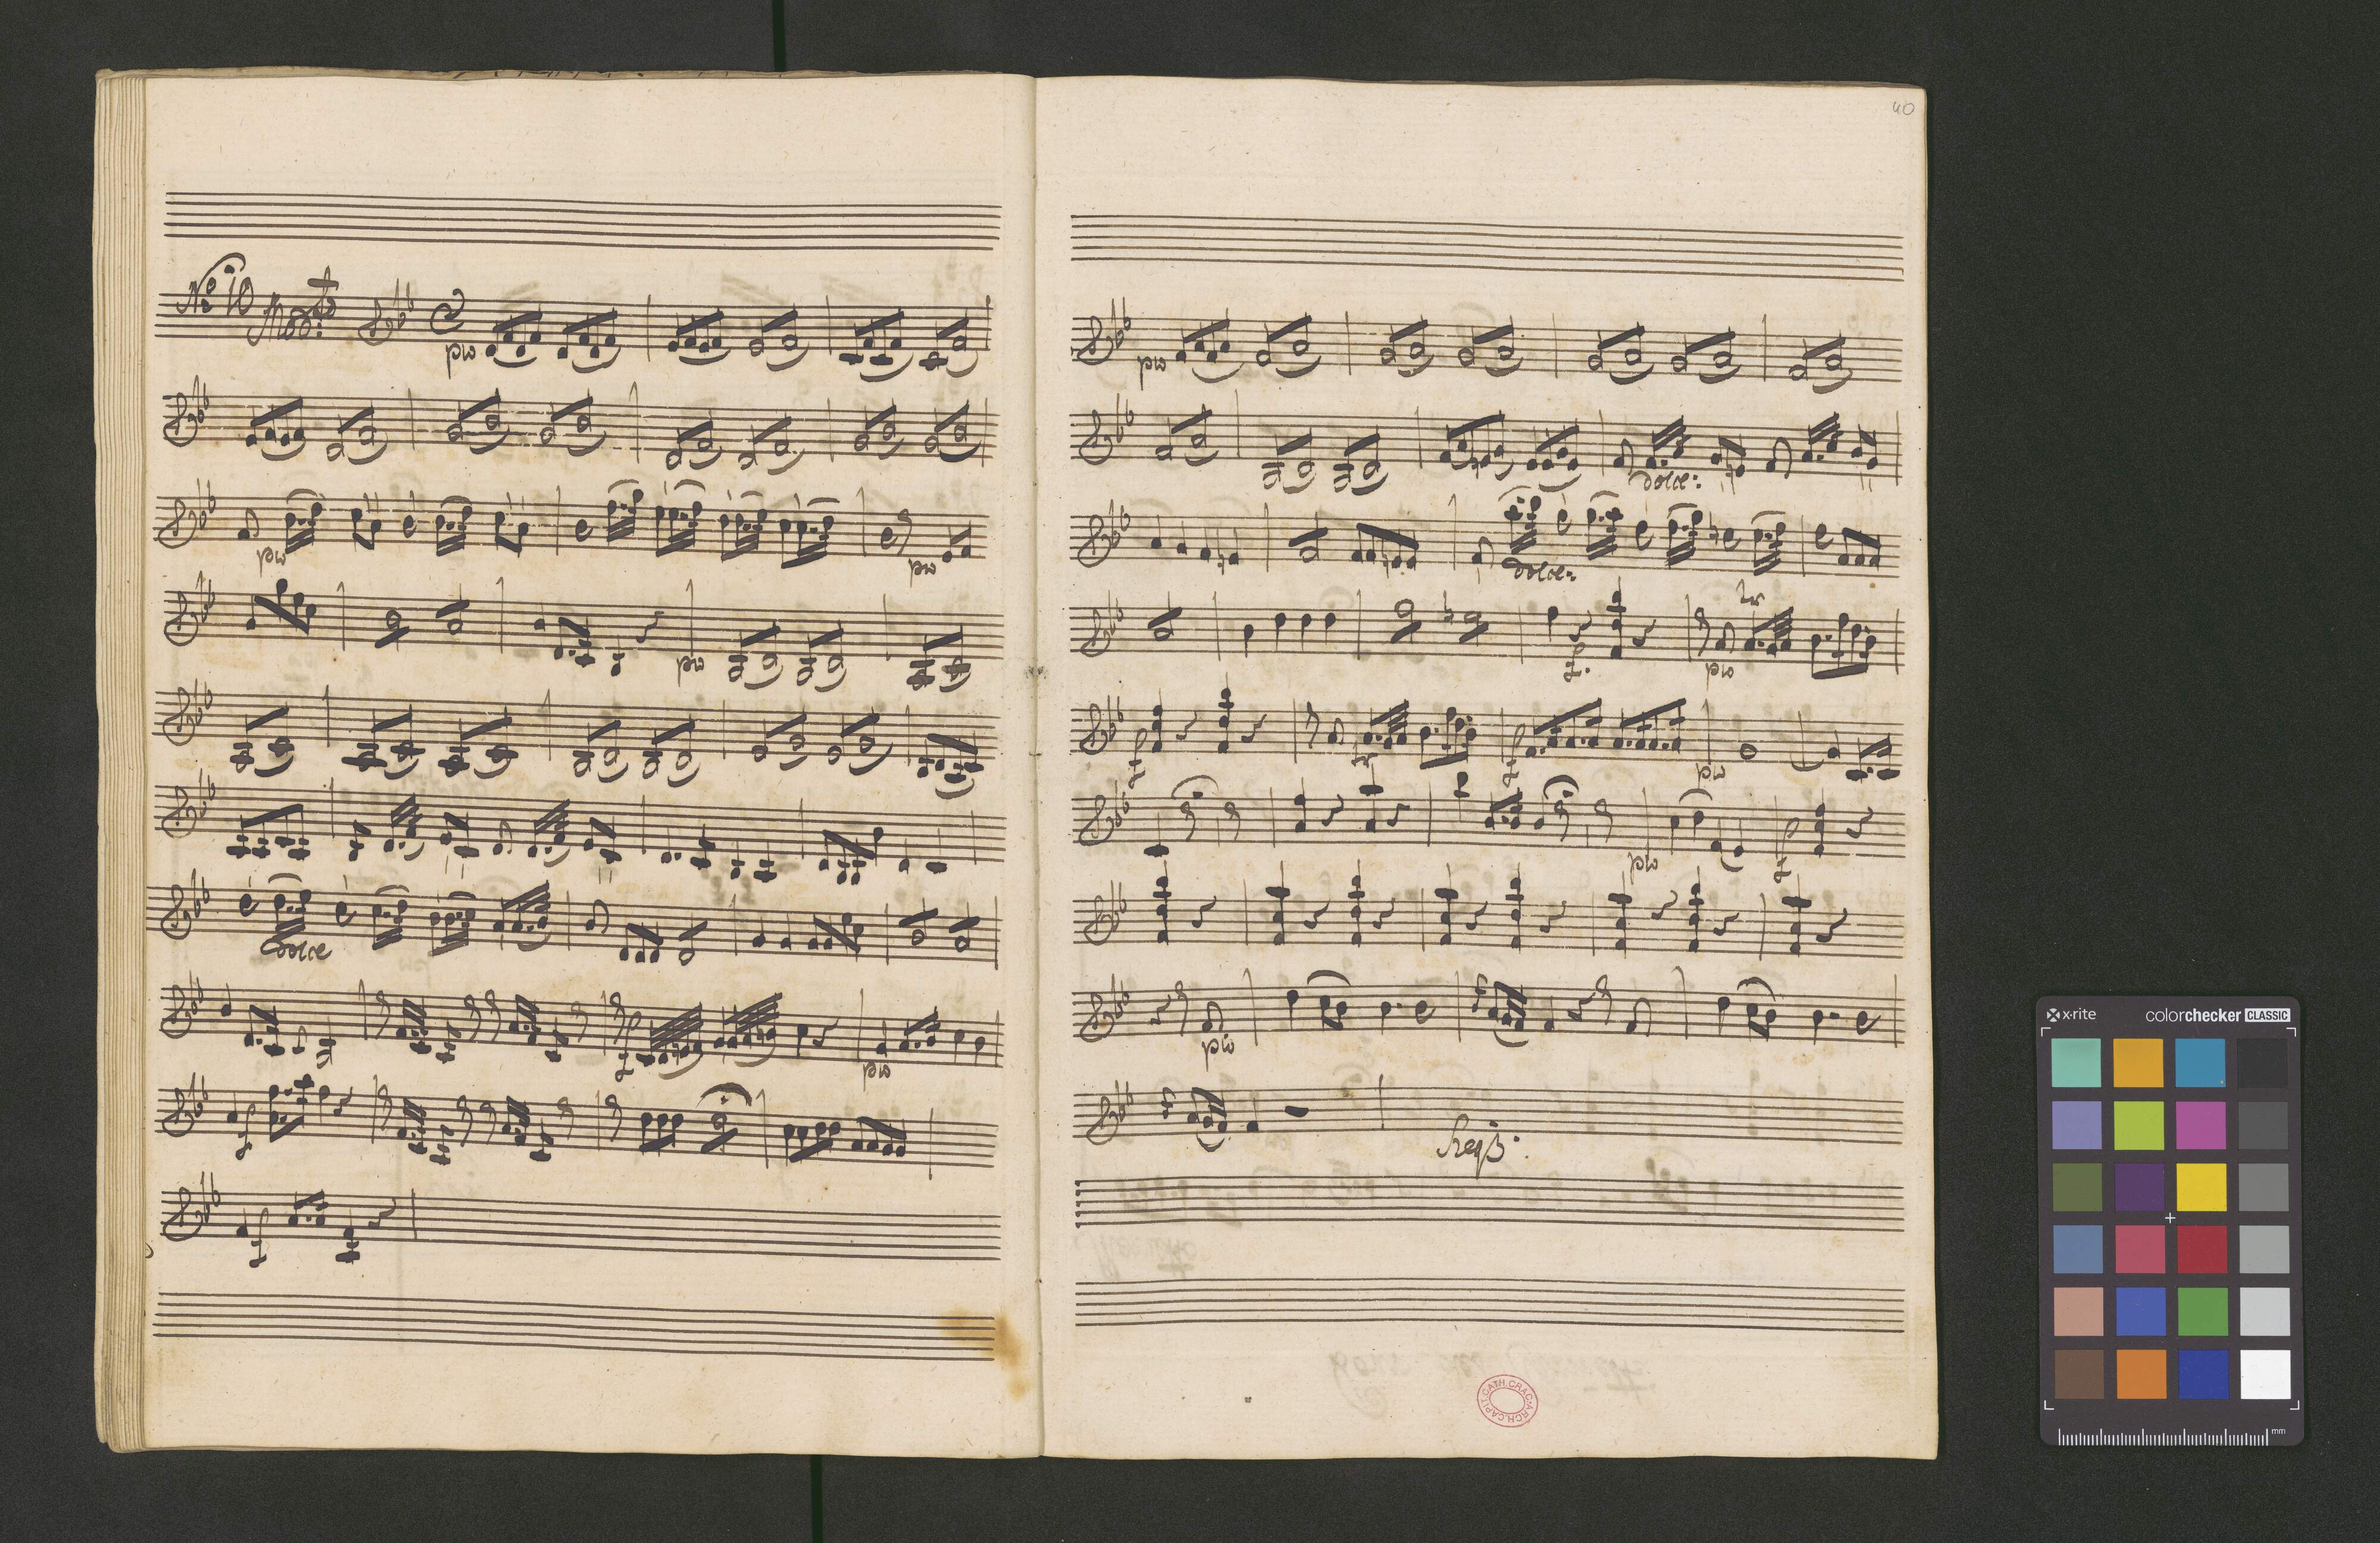 40
No 10 Mod.to
pia
pia
pia
pia
dolce
f
pia
f
f
pia
dolce:
dolce:
f.
pia
tr
f
tr
f
pia
pia
f
pia
ARCH. CAPIT. CATH. CRAC.
x-rite colorchecker CLASSIC
mm